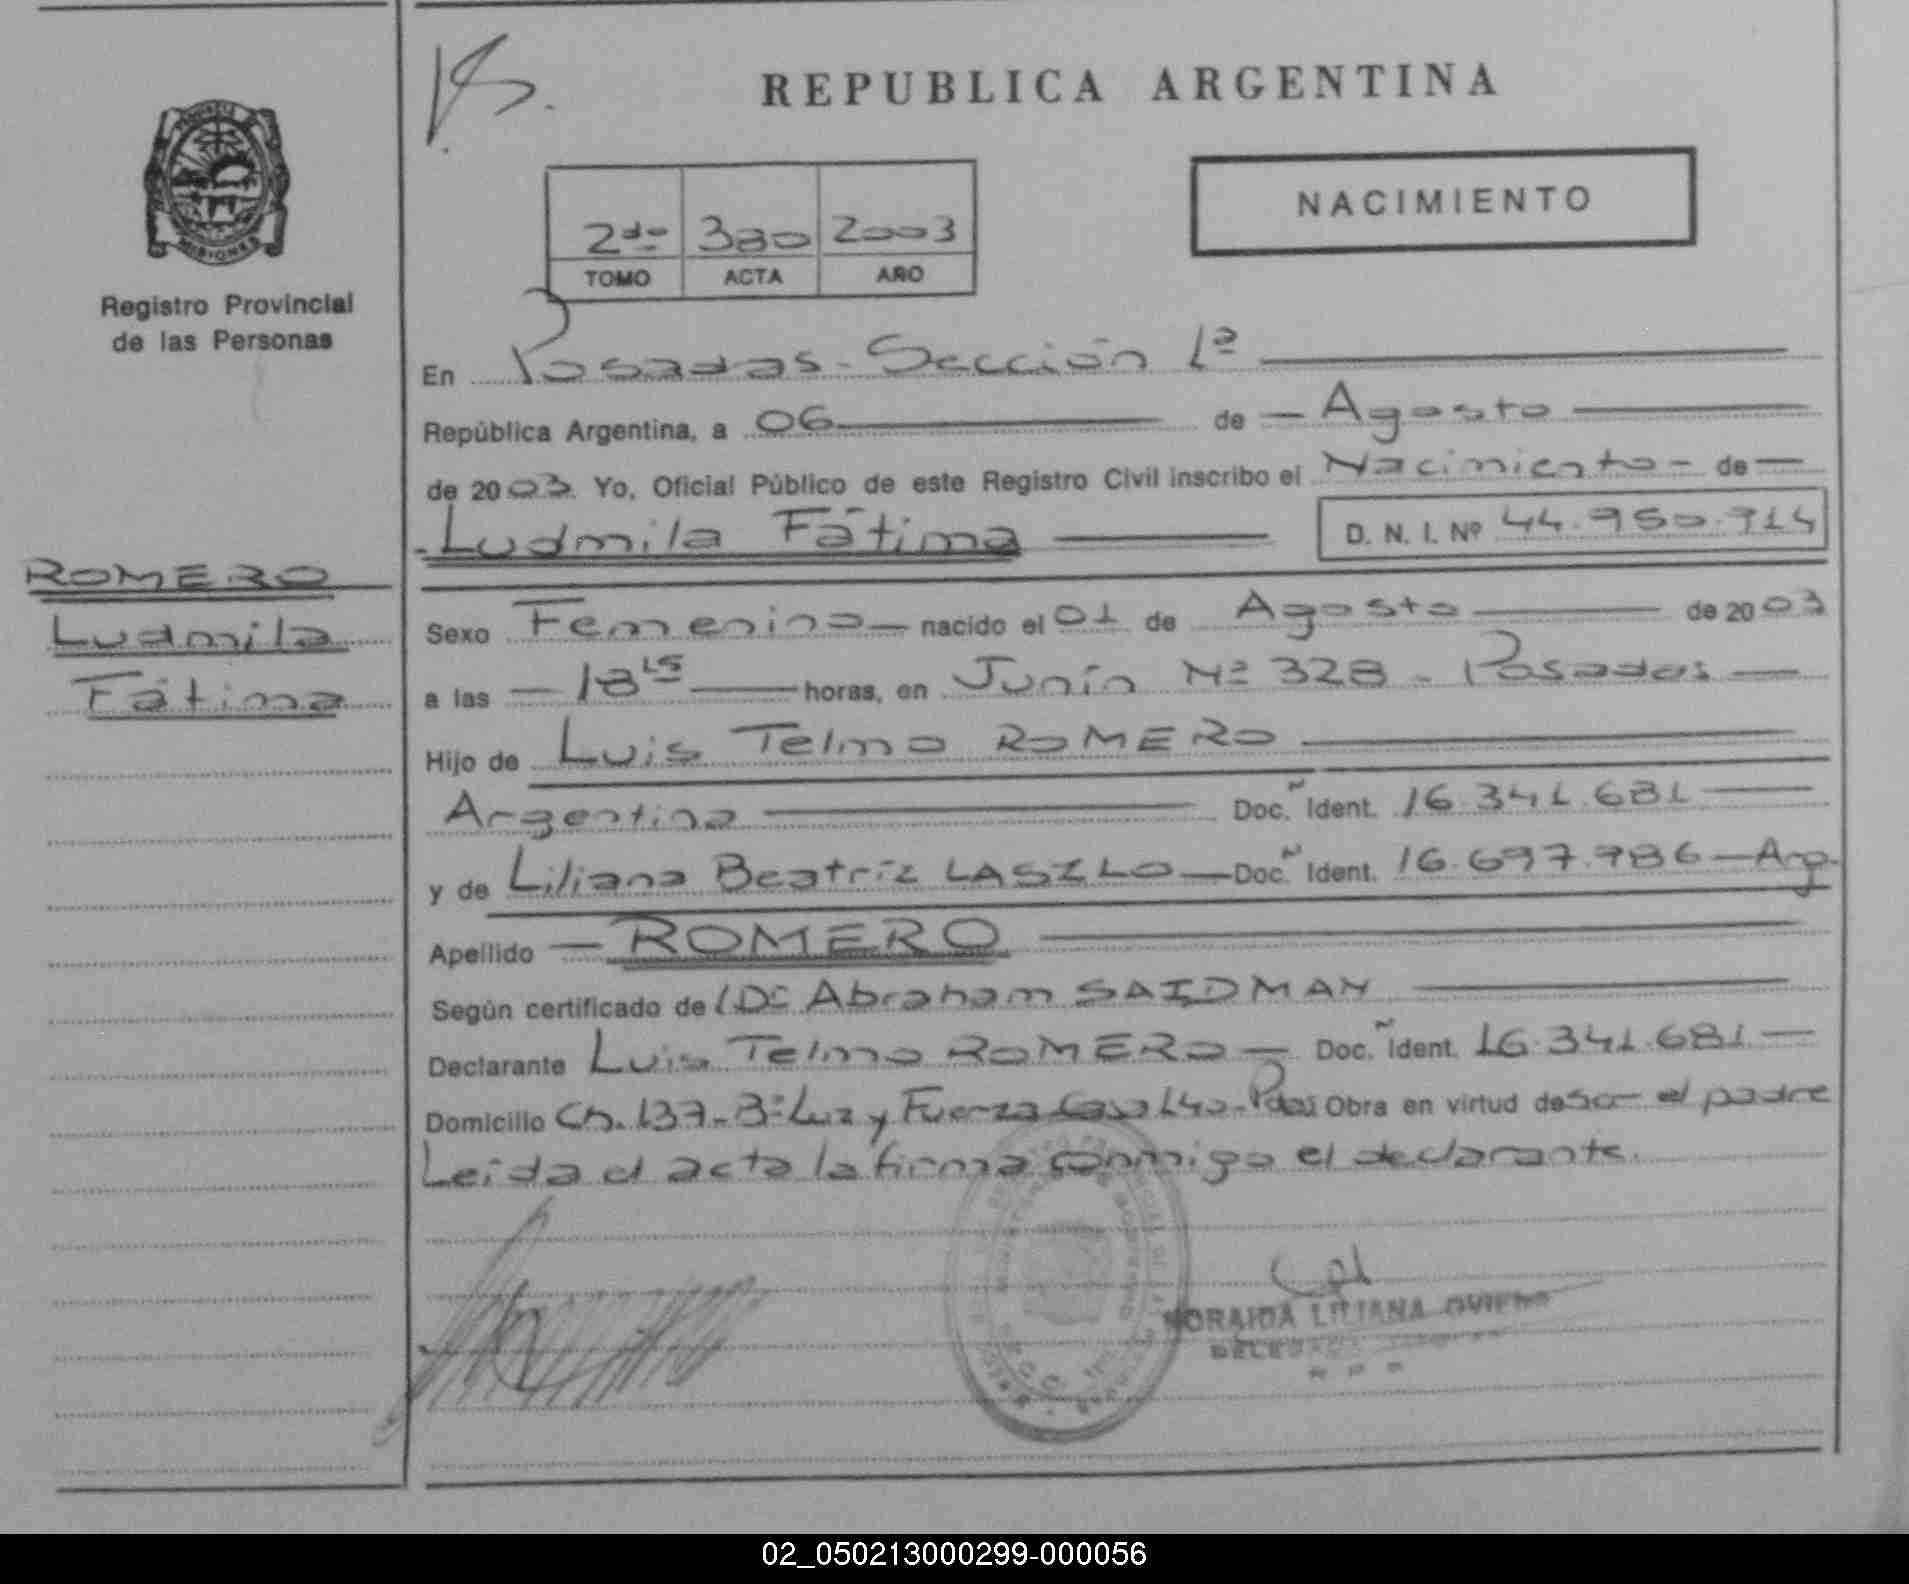 REPUBLICA ARGENTINA
NACIMIENTO
2do 380 2003
TOMO ACTA AÑO
MISIONES
Registro Provincial
de las Personas
En Posadas - Sección 1ª
República Argentina, a 06 de Agosto
de 2003 Yo, Oficial Público de este Registro Civil inscribo el Nacimiento - de
Ludmila Fátima D. N. I. Nº 44.950.914
ROMERO
Ludmila
Fátima
Sexo Femenino nacido el 01 de Agosto de 2003
a las 18 15 horas, en Junín Nº 328 - Posadas
Hijo de Luis Telmo ROMERO
Argentina Doc. Ident. 16.341.681
y de Liliana Beatríz LASZLO Doc. Ident. 16.697.986 - Arg.
Apellido ROMERO
Según certificado de Dr Abraham SAIDMAN
Declarante Luis Telmo ROMERO Doc. Ident. 16.341.681
Domicilio Ch. 137 - Bº Luz y Fuerza Casa 140 - Pdas Obra en virtud de ser el padre
Leida el acta la firma conmigo el declarante.
NORAIDA LILIANA OVIEDO
02_050213000299-000056